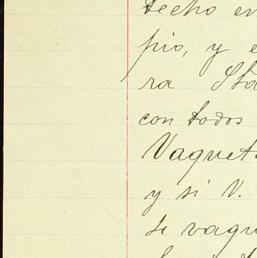 techo en
pio, y e
ra Sta
con todos
Vaqueta
y si V.
se vaqu